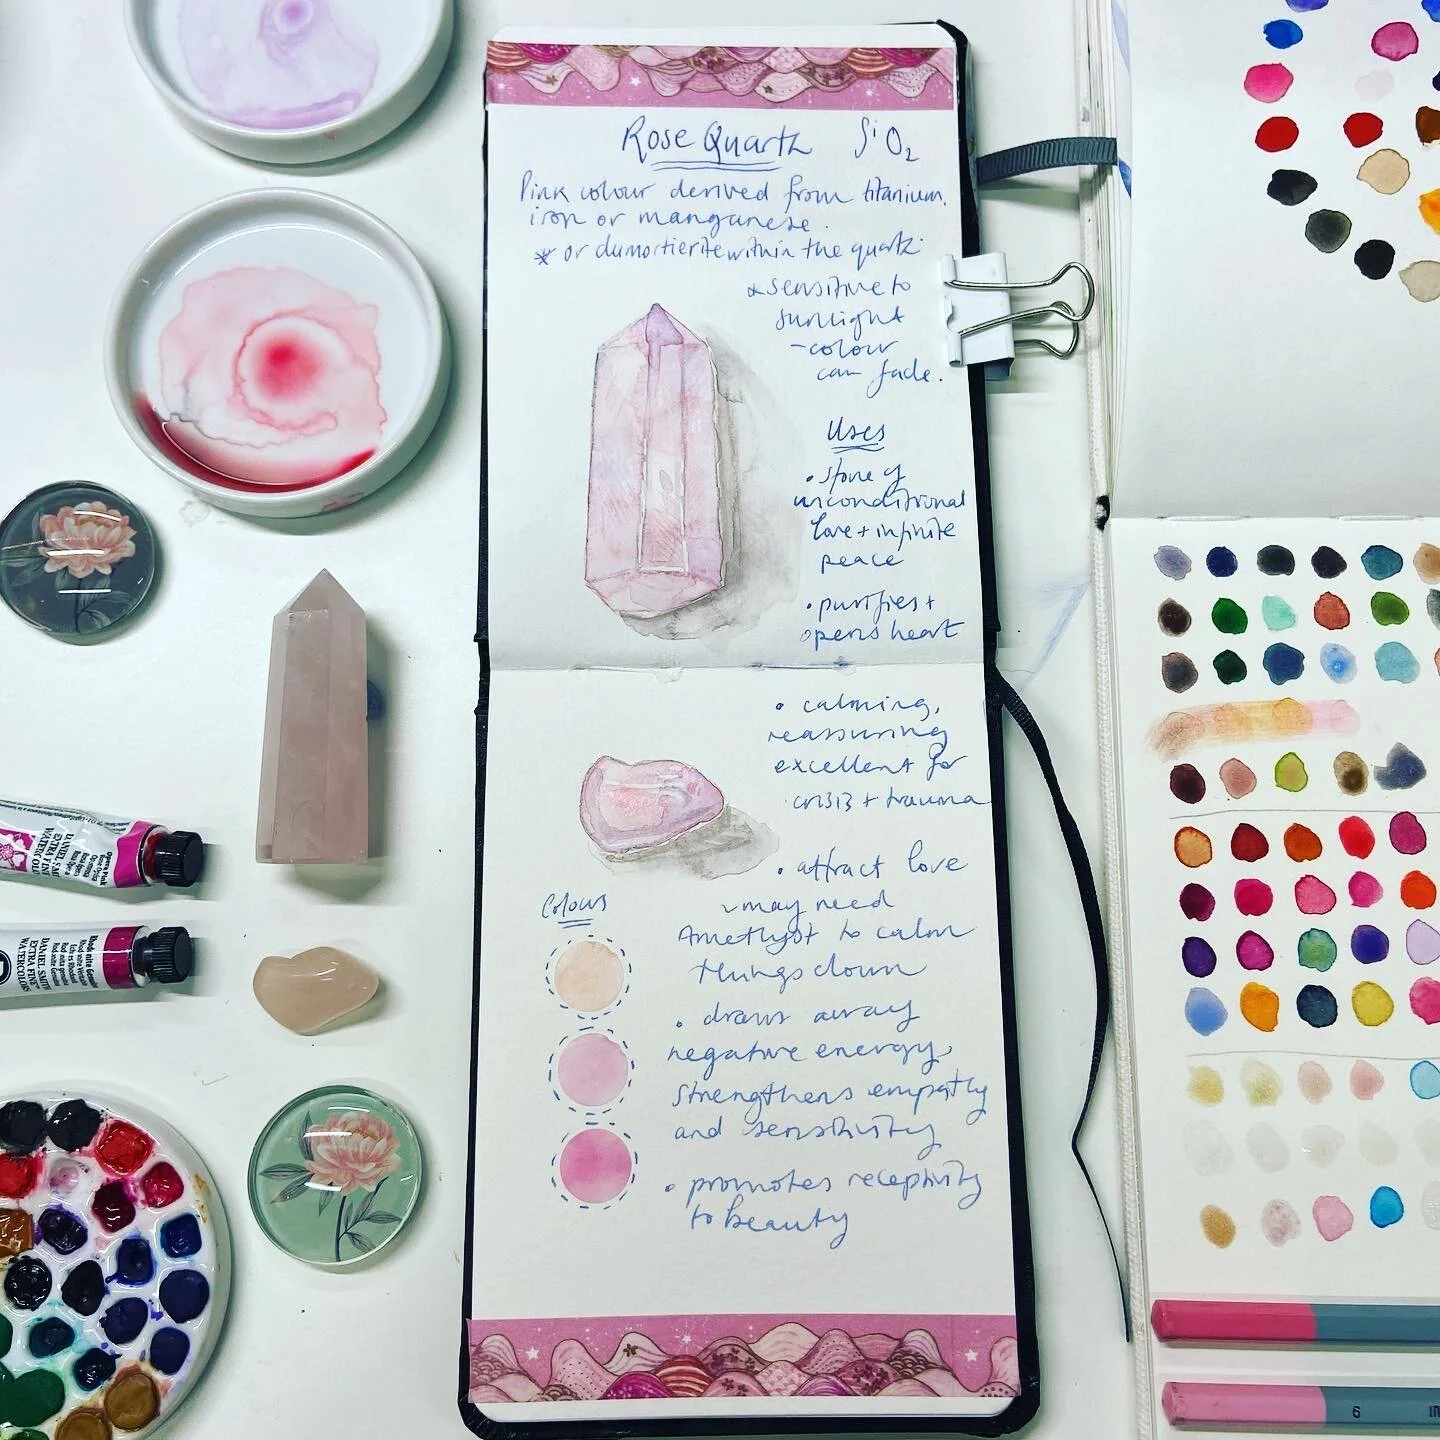 Rose Quartz SiO2
Pink colour derived from titanium,
iron or manganese.
* or dumortierite within the quartz
* sensitive to
sunlight
- colour
can fade.
Uses
• stone of
unconditional
love + infinite
peace
• purifies +
opens heart
• calming,
reassuring
excellent for
crisis + trauma
• attract love
may need
Amethyst to calm
things down
• draws away
negative energy,
strengthens empathy
and sensitivity
• promotes receptivity
to beauty
Colours
DANIEL SMITH
EXTRA FINE
WATERCOLORS
9